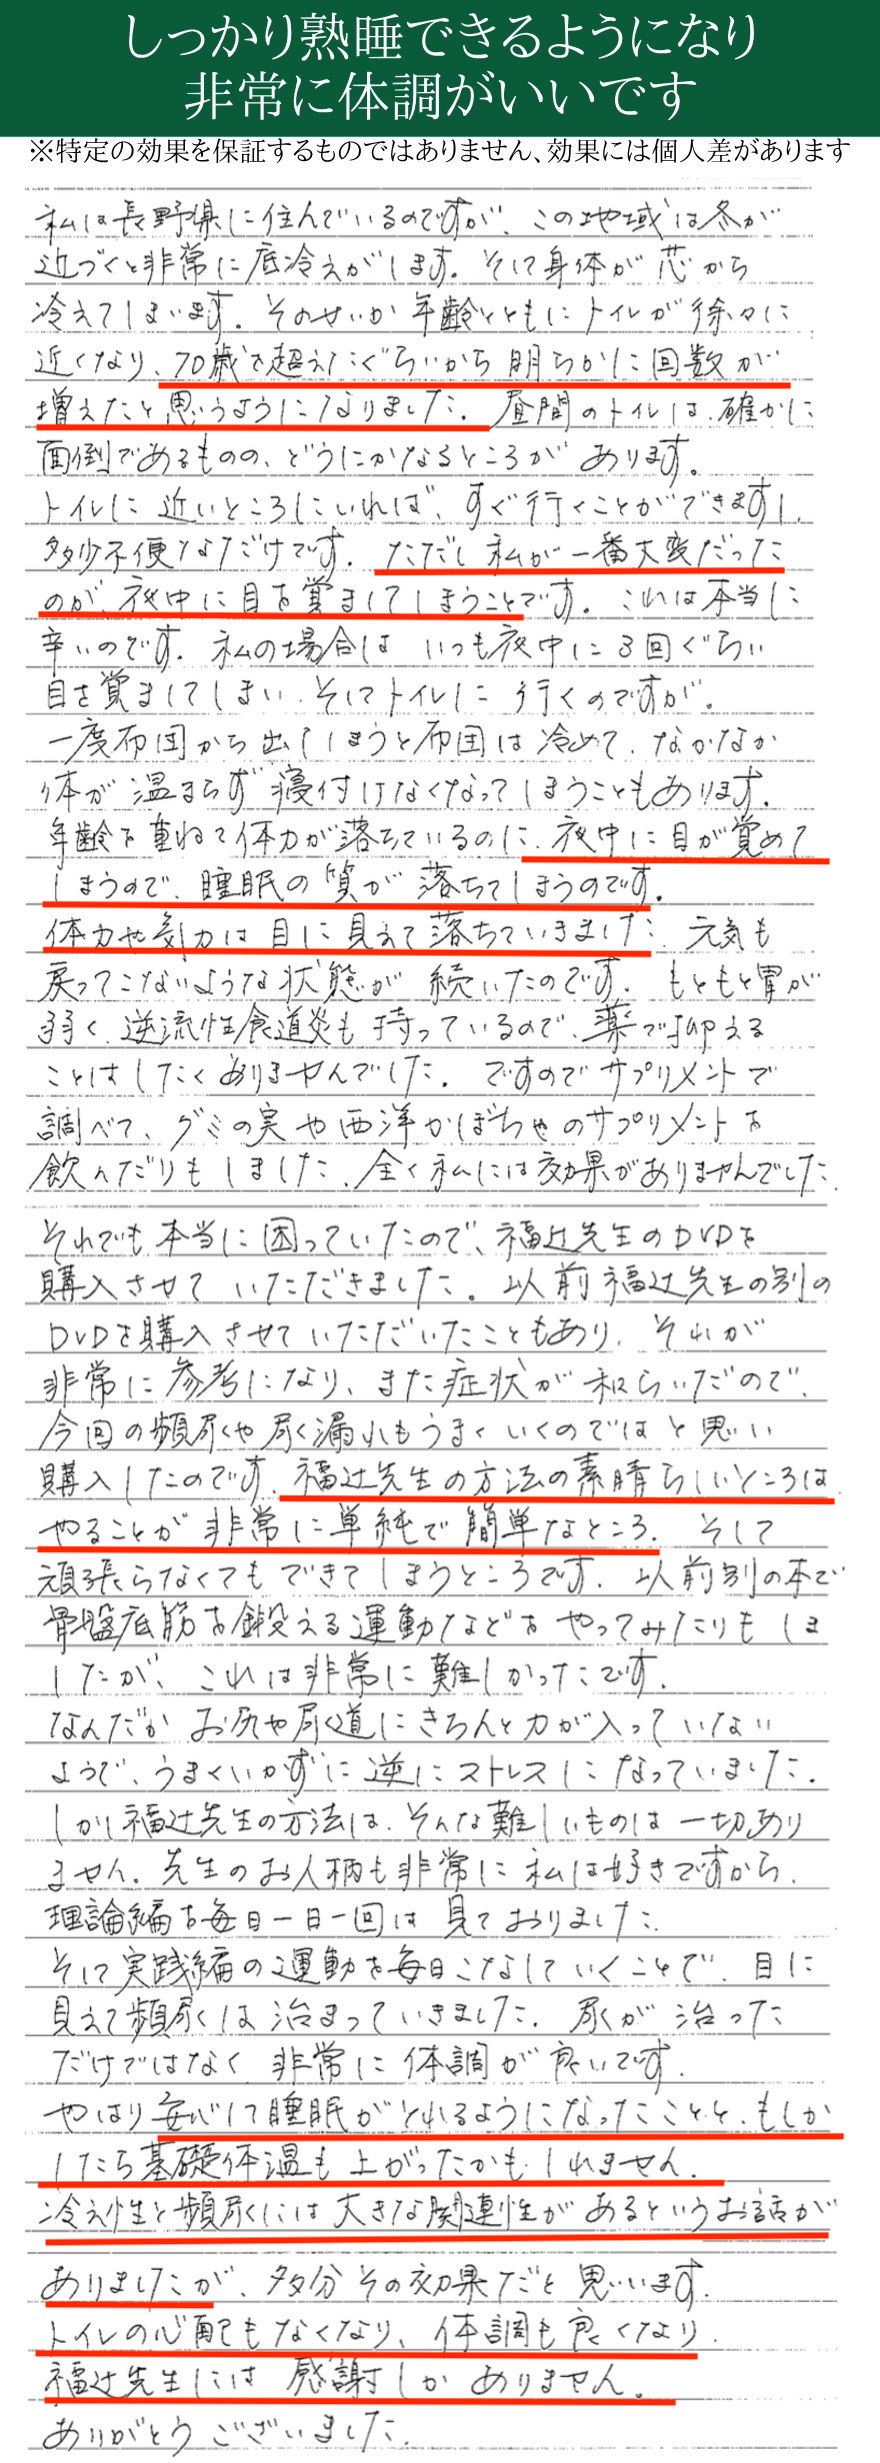 しっかり熟睡できるようになり
非常に体調がいいです
※特定の効果を保証するものではありません、効果には個人差があります
私は長野県に住んでいるのですが、この地域は冬が
近づくと非常に底冷えがします。そして身体が芯から
冷えてしまいます。そのせいか年齢とともにトイレが徐々に
近くなり、70歳を超えたぐらいから明らかに回数が
増えたと思うようになりました。昼間のトイレは、確かに
面倒であるものの、どうにかなるところがあります。
トイレに近いところにいれば、すぐ行くことができますし、
多少不便なだけです。ただし私が一番大変だった
のが、夜中に目を覚ましてしまうことです。これは本当に
辛いのです。私の場合は いつも夜中に3回ぐらい
目を覚ましてしまい、そしてトイレに行くのですが。
一度布団から出てしまうと布団は冷めて、なかなか
体が温まらず寝付けなくなってしまうこともあります。
年齢を重ねて体力が落ちているのに、夜中に目が覚めて
しまうので、睡眠の質が落ちてしまうのです。
体力や気力は目に見えて落ちていきました。元気も
戻ってこないような状態が続いたのです。もともと胃が
弱く、逆流性食道炎も持っているので、薬で抑える
ことはしたくありませんでした。ですのでサプリメントで
調べて、グミの実や西洋かぼちゃのサプリメントを
飲んだりもしました、全く私には効果がありませんでした。
それでも本当に困っていたので、福辻先生のDVDを
購入させていただきました。以前福辻先生の別の
DVDを購入させていただいたこともあり、それが
非常に参考になり、また症状が和らいだので、
今回の頻尿や尿漏れもうまくいくのではと思い
購入したのです。福辻先生の方法の素晴らしいところは
やることが非常に単純で簡単なところ。そして
頑張らなくてもできてしまうところです。以前別の本で
骨盤底筋を鍛える運動などをやってみたりもしま
したが、これは非常に難しかったです。
なんだかお尻や尿道にきちんと力が入っていない
ようで、うまくいかずに逆にストレスになっていました。
しかし福辻先生の方法は、そんな難しいものは一切あり
ません。先生のお人柄も非常に私は好きですから、
理論編を毎日一日一回は見ておりました。
そして実践編の運動を毎日こなしていくことで、目に
見えて頻尿は治まっていきました。尿が治った
だけではなく、非常に体調が良いです。
やはり安心して睡眠がとれるようになったことと、もしか
したら基礎体温も上がったかもしれません。
冷え性と頻尿には大きな関連性があるというお話が
ありましたが、多分その効果だと思います。
トイレの心配もなくなり、体調も良くなり
福辻先生には感謝しかありません。
ありがとうございました。